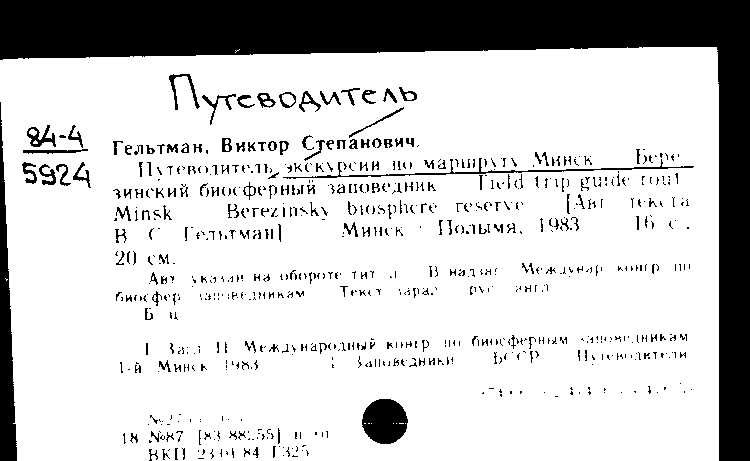 Путеводитель
84-4
5924
Гельтман, Виктор Степанович.
Путеводитель экскурсии по маршруту Минск Бере-
зинский биосферный заповедник Field trip guide rout
Minsk Berezinsky biosphere reserve [Авт текста
В С Гельтман] Минск : Полымя, 1983 16 с.,
20 см.
Авт указан на обороте тит л В надзаг Междунар конгр по
биосфер заповедникам Текст парал рус англ
Б ц
I Загл II Международный конгр по биосферным заповедникам
1-й Минск 1983 1 Заповедники БССР Путеводители
18 №87 [83 88255] п
ВКП 23 01 84 Г325